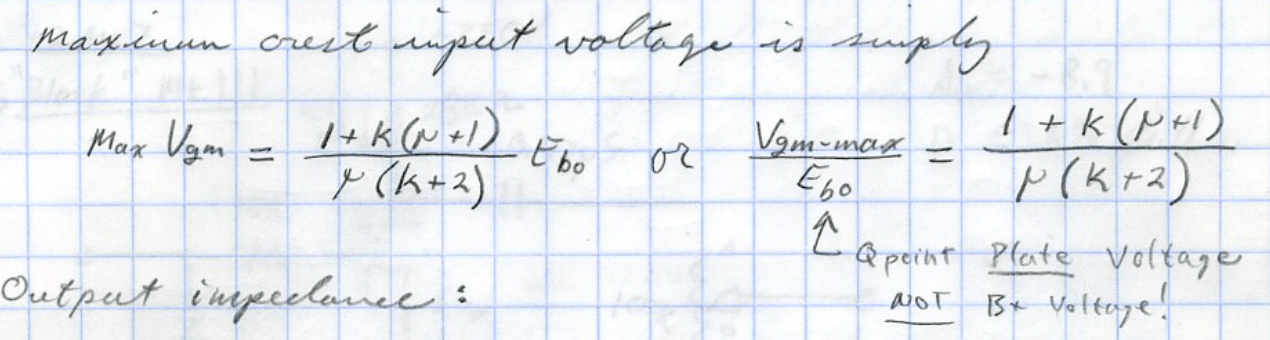 Maximum crest input voltage is simply
Max Vgm = 1+k(μ+1) / μ(k+2) Ebo or Vgm-max / Ebo = 1+k(μ+1) / μ(k+2)
↑ Qpoint Plate Voltage
NOT B+ Voltage!
Output impedance: